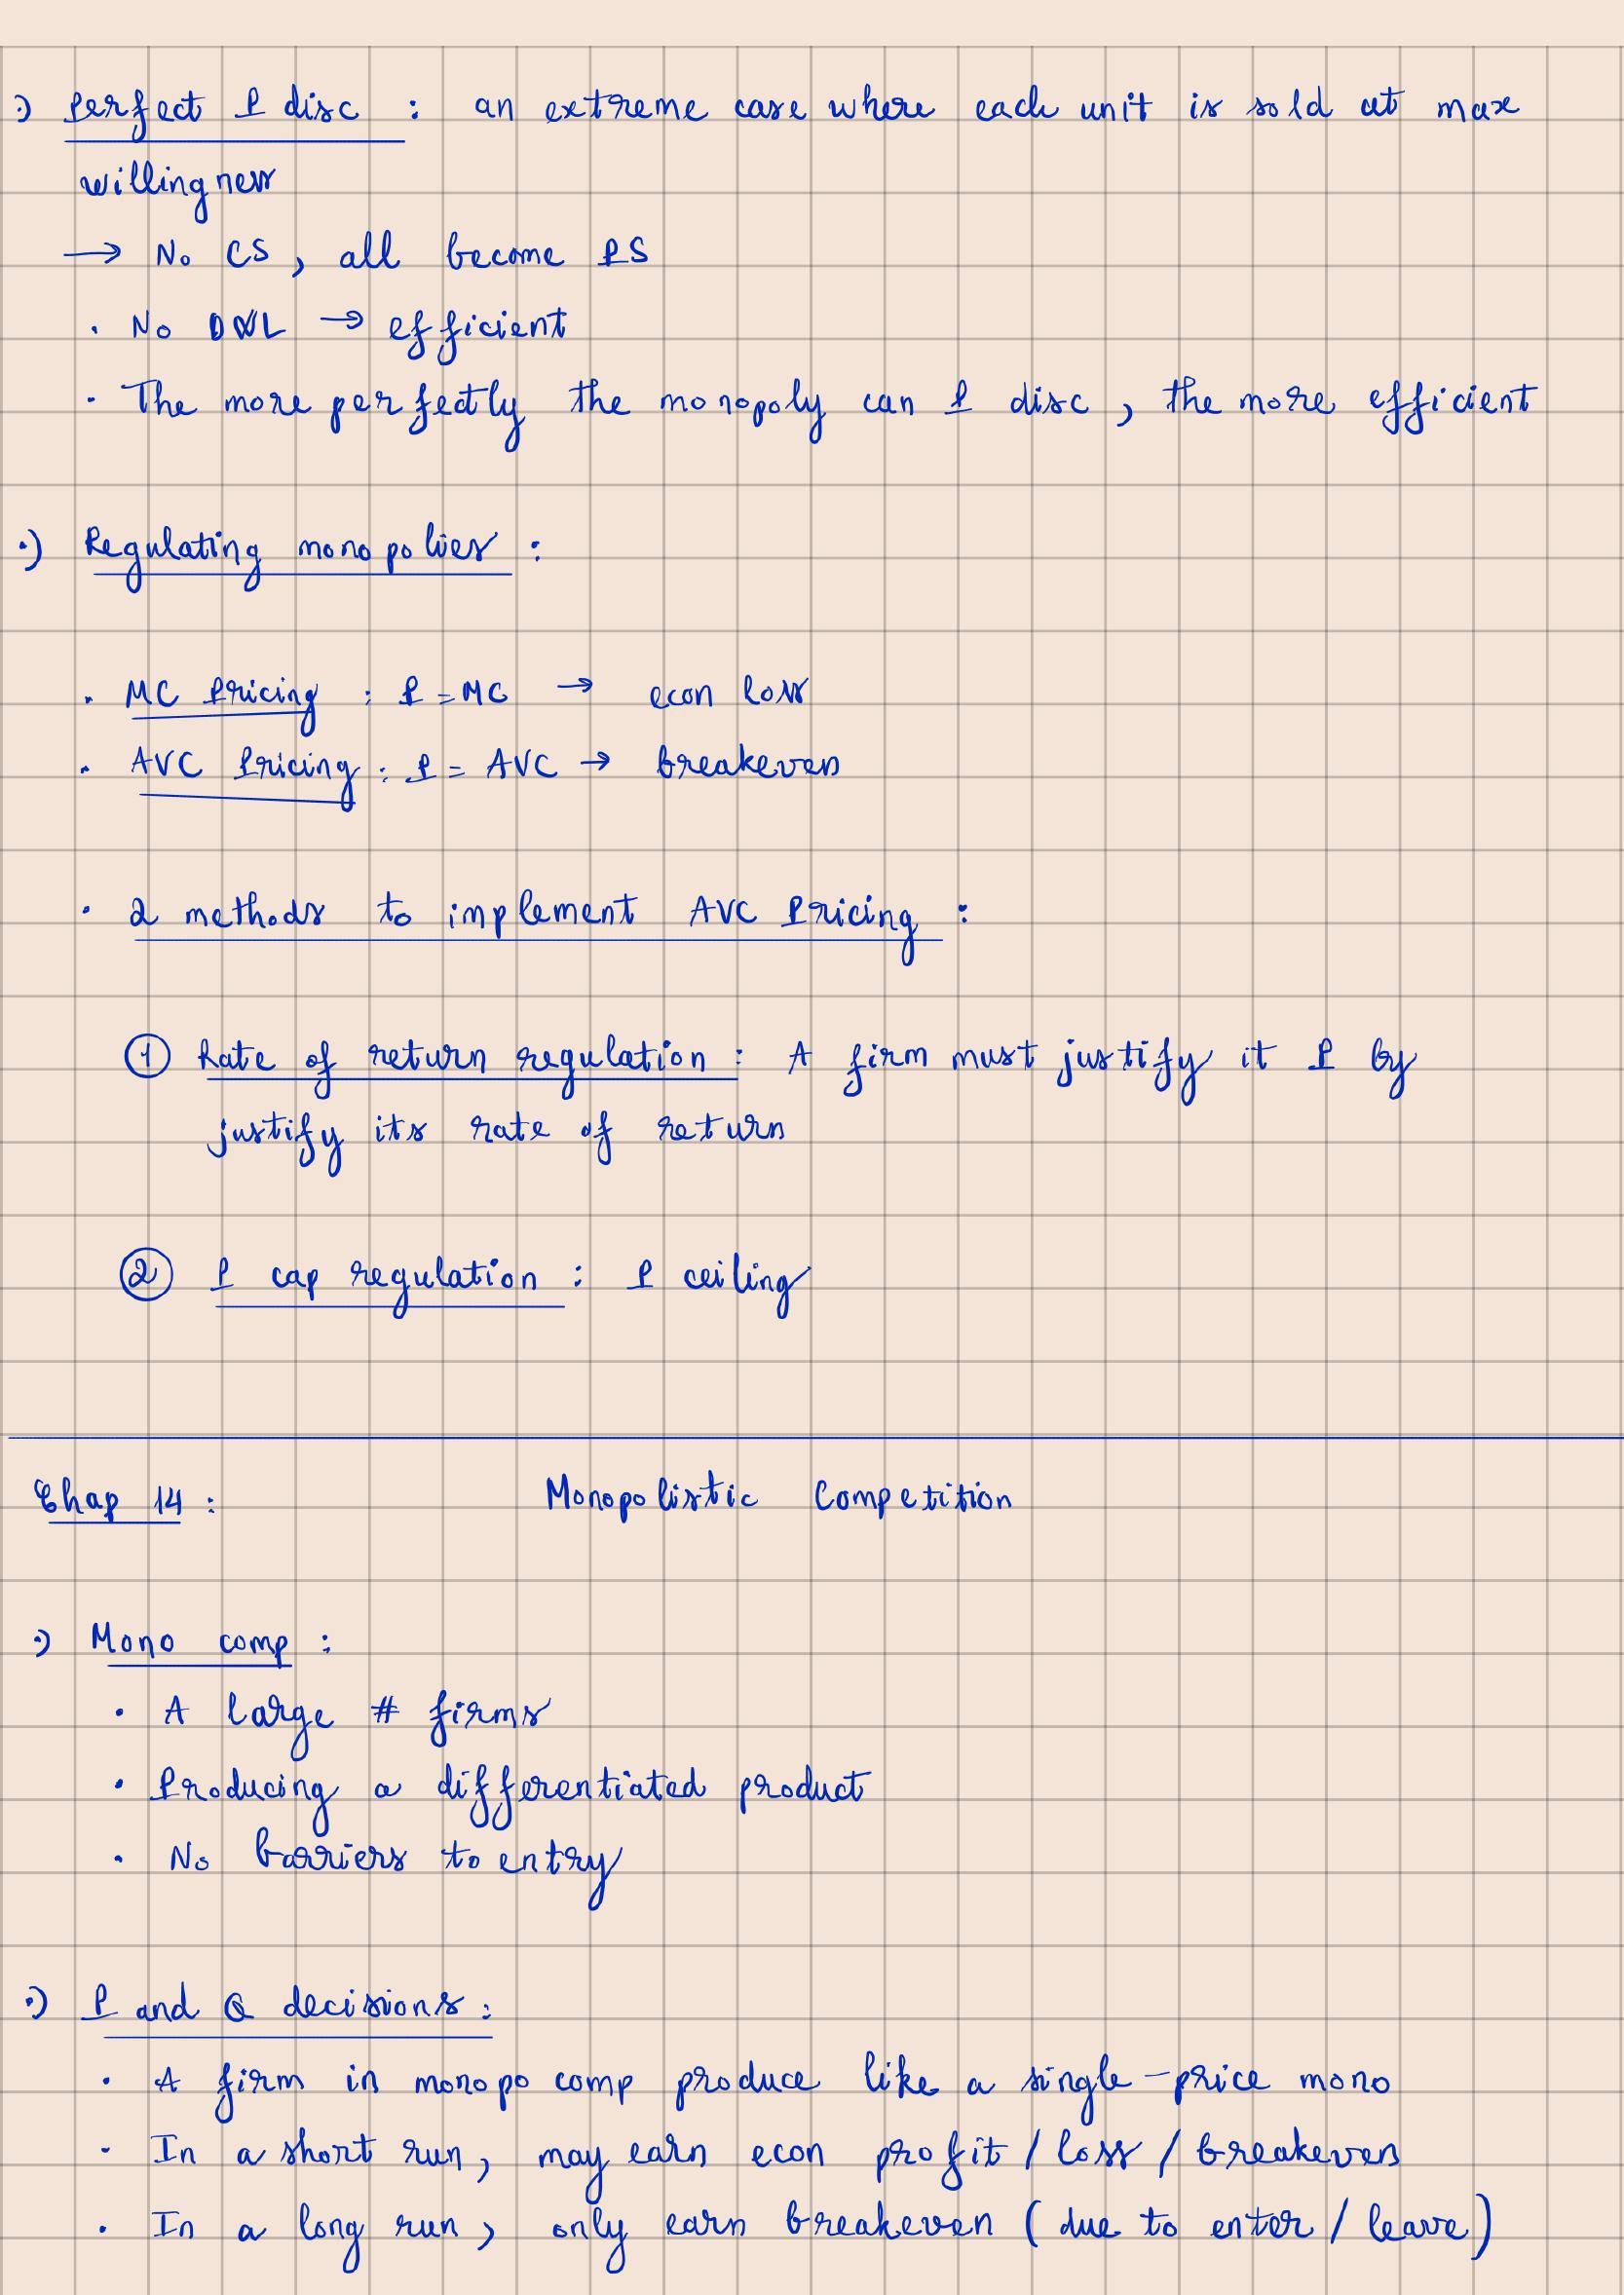 ·) Perfect P disc : an extreme case where each unit is sold at max
willingness
→ No CS, all become PS
· No DWL → efficient
· The more perfectly the monopoly can P disc, the more efficient
·) Regulating monopolies :
· MC Pricing : P = MC → econ loss
· AVC Pricing : P = AVC → breakeven
· 2 methods to implement AVC Pricing :
① Rate of return regulation : A firm must justify it P by
justify its rate of return
② P cap regulation : P ceiling
Chap 14 : Monopolistic Competition
·) Mono comp :
· A large # firms
· Producing a differentiated product
· No barriers to entry
·) P and Q decisions :
· A firm in monopo comp produce like a single-price mono
· In a short run, may earn econ profit / loss / breakeven
· In a long run, only earn breakeven (due to enter / leave)